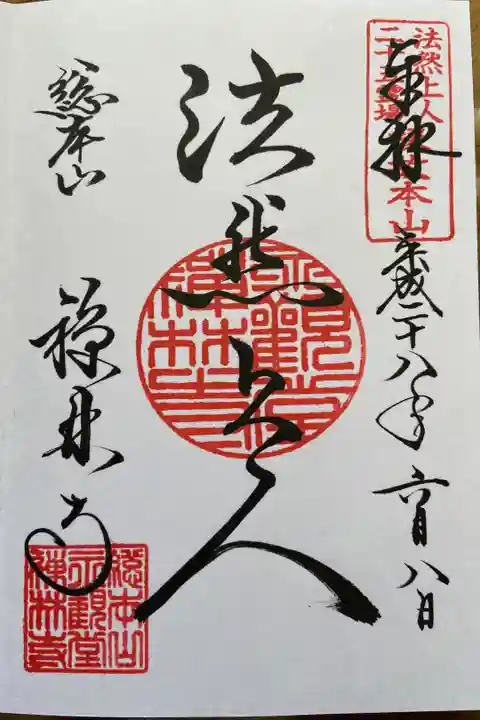 奉拝
法然上人
二十五霊場
本山
平成二十八年 六月八日
法然上人
総本山
禅林寺
総本山
永観堂
禅林寺